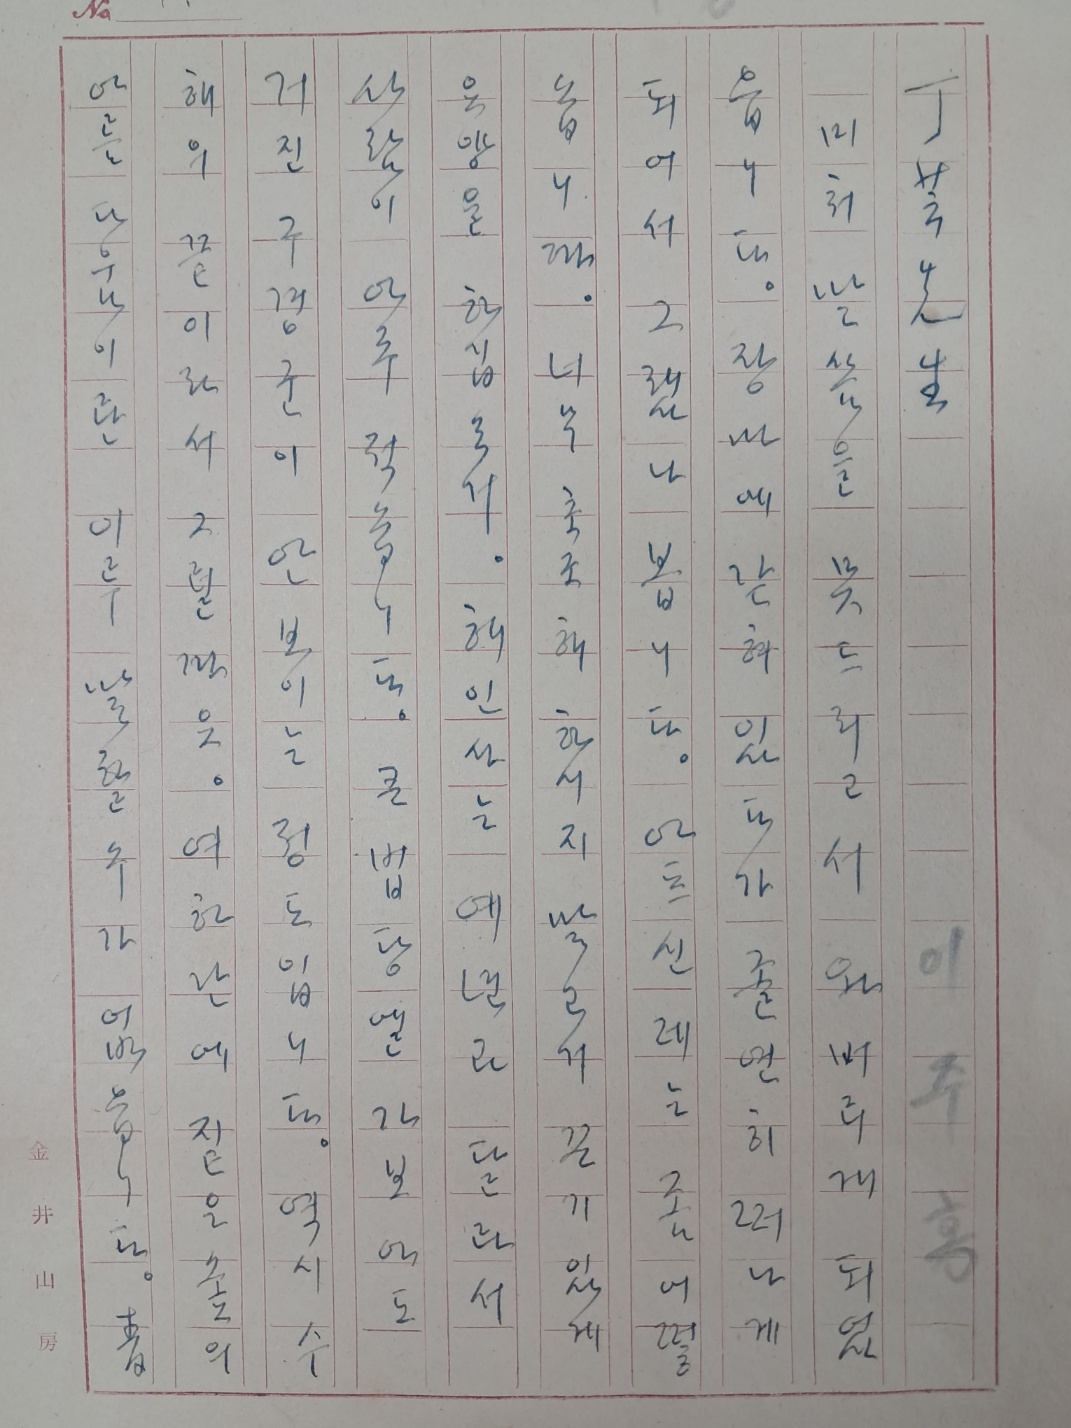 No
丁芝先生
이주홍
미처 말씀을 못드리고서 와버리게 되었
읍니다. 장사에 간혀 있다가 졸연히 떠나게
되여서 그랬나 봅니다. 아프신 레는 좀 어떨
놉니까. 너무 초조해 하시지 말고서 끈기있게
욕양을 하십오서. 해인사는 예년과 달라서
사람이 아주 적습니다. 큰 법당엘 가보아도
거진 구경군이 안 보이는 정도입니다. 역시 수
해의 끝이라서 그럴까요. 여하간에 짙은 송의
아름다움이란 이루 말할 수가 없습니다. 春
金井山房